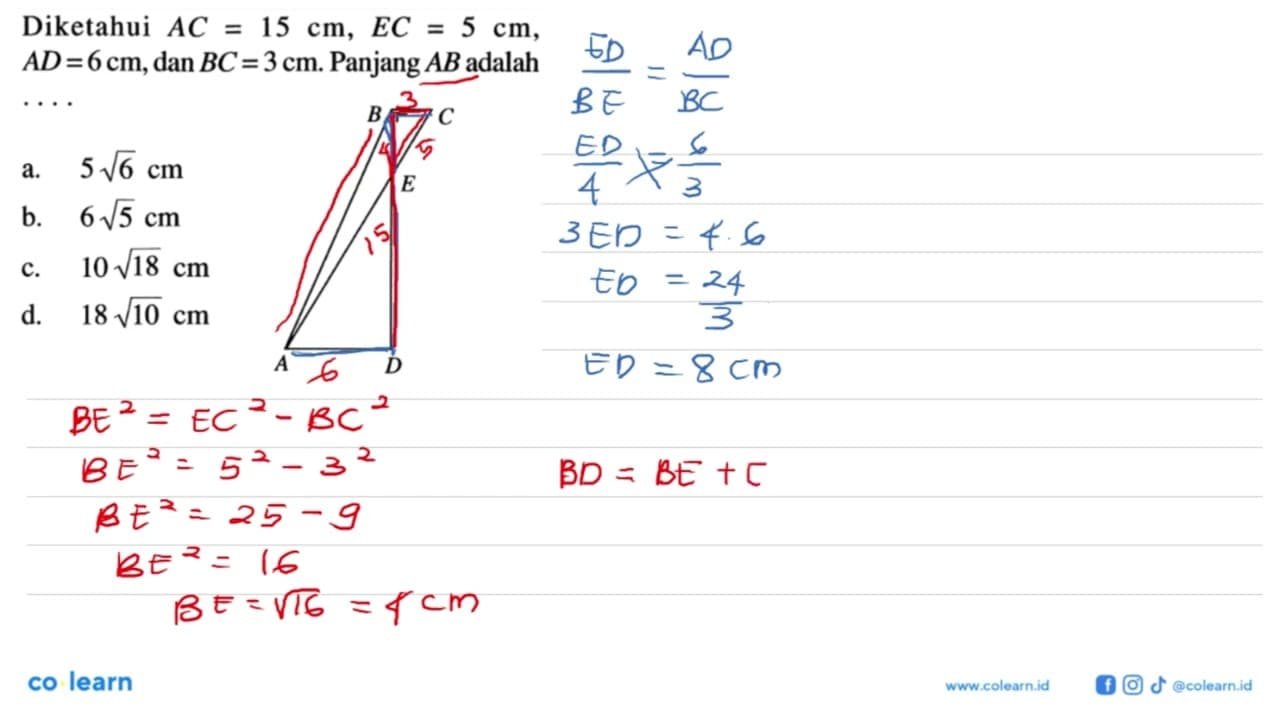 Diketahui AC = 15 cm, EC = 5 cm,
AD = 6 cm, dan BC = 3 cm. Panjang AB adalah
....
a. 5√6 cm
b. 6√5 cm
c. 10√18 cm
d. 18√10 cm
3
B C
4 5
E
15
A 6 D
ED/BE = AD/BC
ED/4 = 6/3
3ED = 4.6
ED = 24/3
ED = 8 cm
BE² = EC² - BC²
BE² = 5² - 3²
BE² = 25 - 9
BE² = 16
BE = √16 = 4 cm
BD = BE + E
co learn
www.colearn.id
@colearn.id